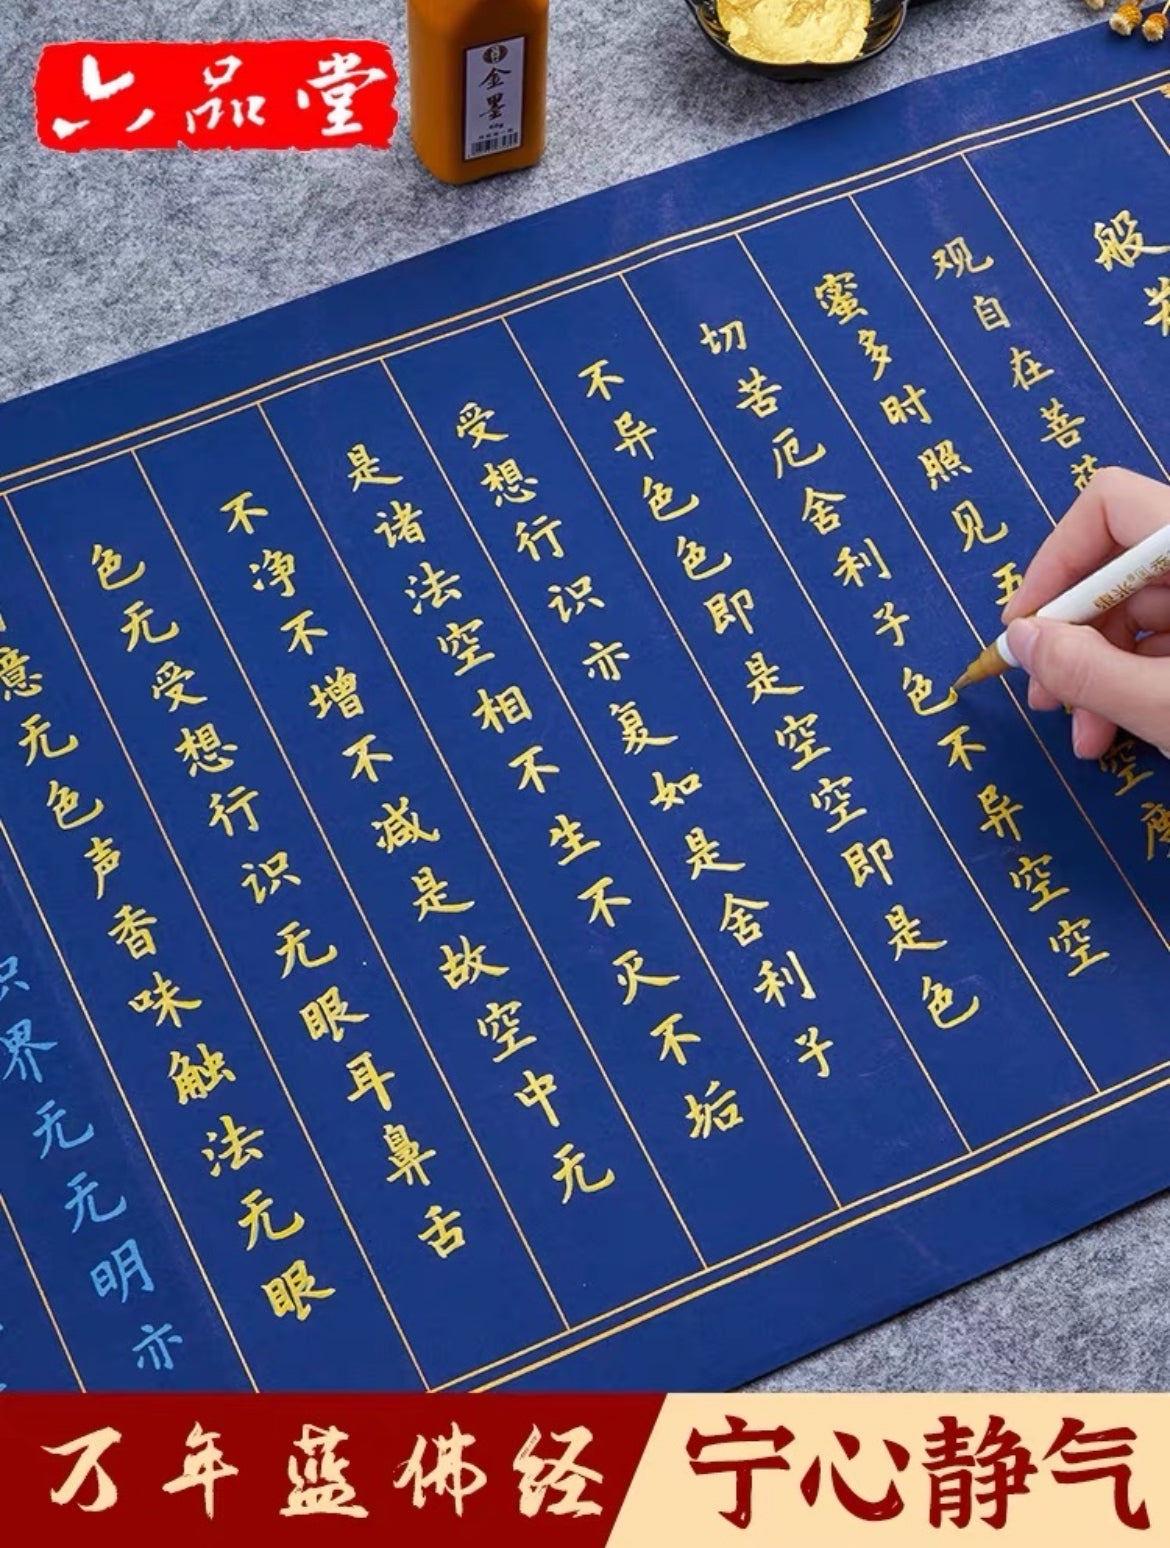 六品堂
金墨
般
观自在菩
空度
蜜多时照见五
色不异空空
切苦厄舍利子
是空空即是色
不异色色即
是舍利子
受想行识亦复如
不生不灭不垢
是诸法空相
是故空中无
不净不增不减
无眼耳鼻舌
色无受想行识
触法无眼
意无色声香味
识界无无明亦
万年蓝佛经
宁心静气